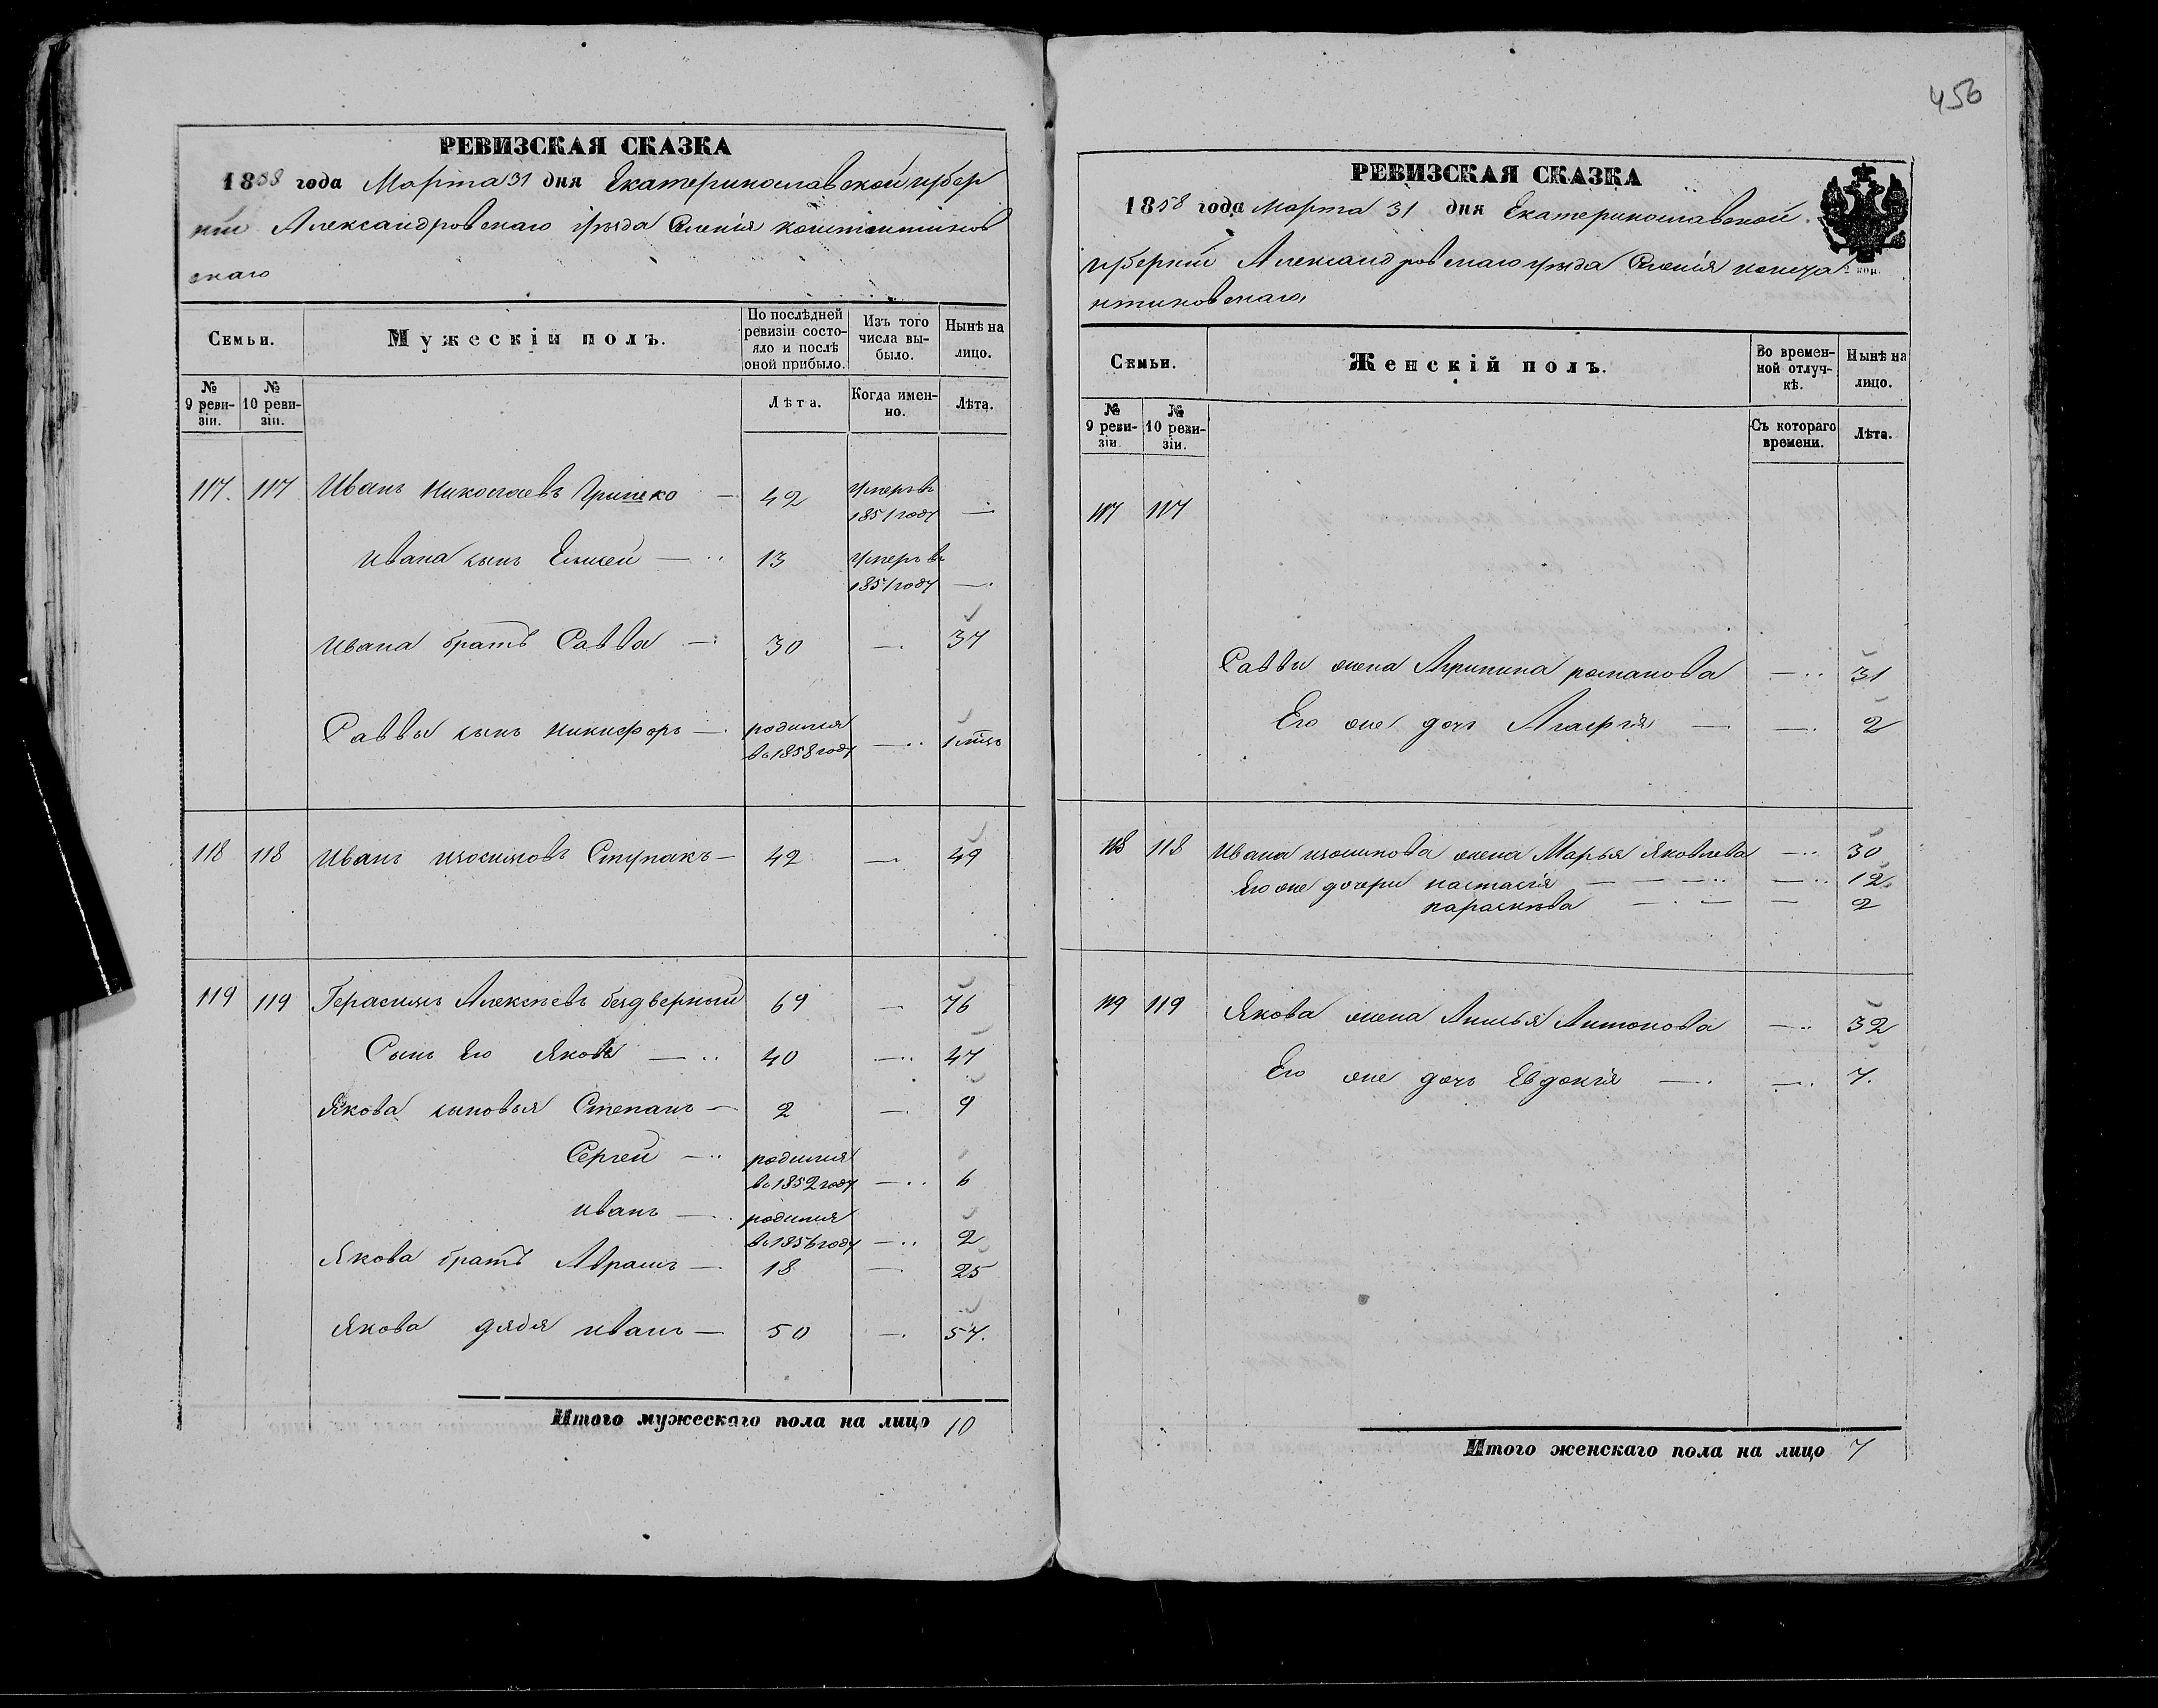 456
РЕВИЗСКАЯ СКАЗКА
1858 года Марта 31 дня Екатеринославской губер
нии Александровскаго уѣзда Селенія константинов
скаго
Семьи.
Мужескій полъ.
По послѣдней ревизіи состояло и послѣ оной прибыло.
Изъ того числа выбыло.
Нынѣ на лицо.
№ 9 ревизіи.
№ 10 ревизіи.
Лѣта.
Когда именно.
Лѣта.
117. 117 Иванъ Николаевъ Гришко — 42 умеръ в 1851 году —
Ивана сынъ Елисей — 13 умеръ в 1851 году —
Ивана братъ Савва — 30 — 37
Саввы сынъ Никифоръ — родился в 1858 году — 1 мѣсъ
118 118 Иванъ Изосимовъ Ступакъ — 42 — 49
119 119 Герасимъ Алексѣевъ бездверный 69 — 76
Сынъ Его Яковъ — 40 — 47
Якова сыновья Степанъ — 2 — 9
Сергей — родился в 1852 году — 6
Иванъ — родился в 1856 году — 2
Якова братъ Абрамъ — 18 — 25
Якова дядя Иванъ — 50 — 57.
Итого мужескаго пола на лицо 10
РЕВИЗСКАЯ СКАЗКА
1858 года Марта 31 дня Екатеринославской
губерніи Александровскаго уѣзда Селенія конста
нтиновскаго.
2 коп.
Семьи.
Женскій полъ.
Во временной отлучкѣ.
Нынѣ на лицо.
№ 9 ревизіи.
№ 10 ревизіи.
Съ котораго времени.
Лѣта.
117 117
Саввы жена Агрипина романова — 31
Его же дочь Агафія — — 2
118 118 Ивана изосимова жена Марья Яковлева — 30
Его же дочери настасія — — 12
параскѣва — — 2
119 119 Якова жена Анисья Антонова — 32
Его же дочь Евдокія — — 7.
Итого женскаго пола на лицо 7